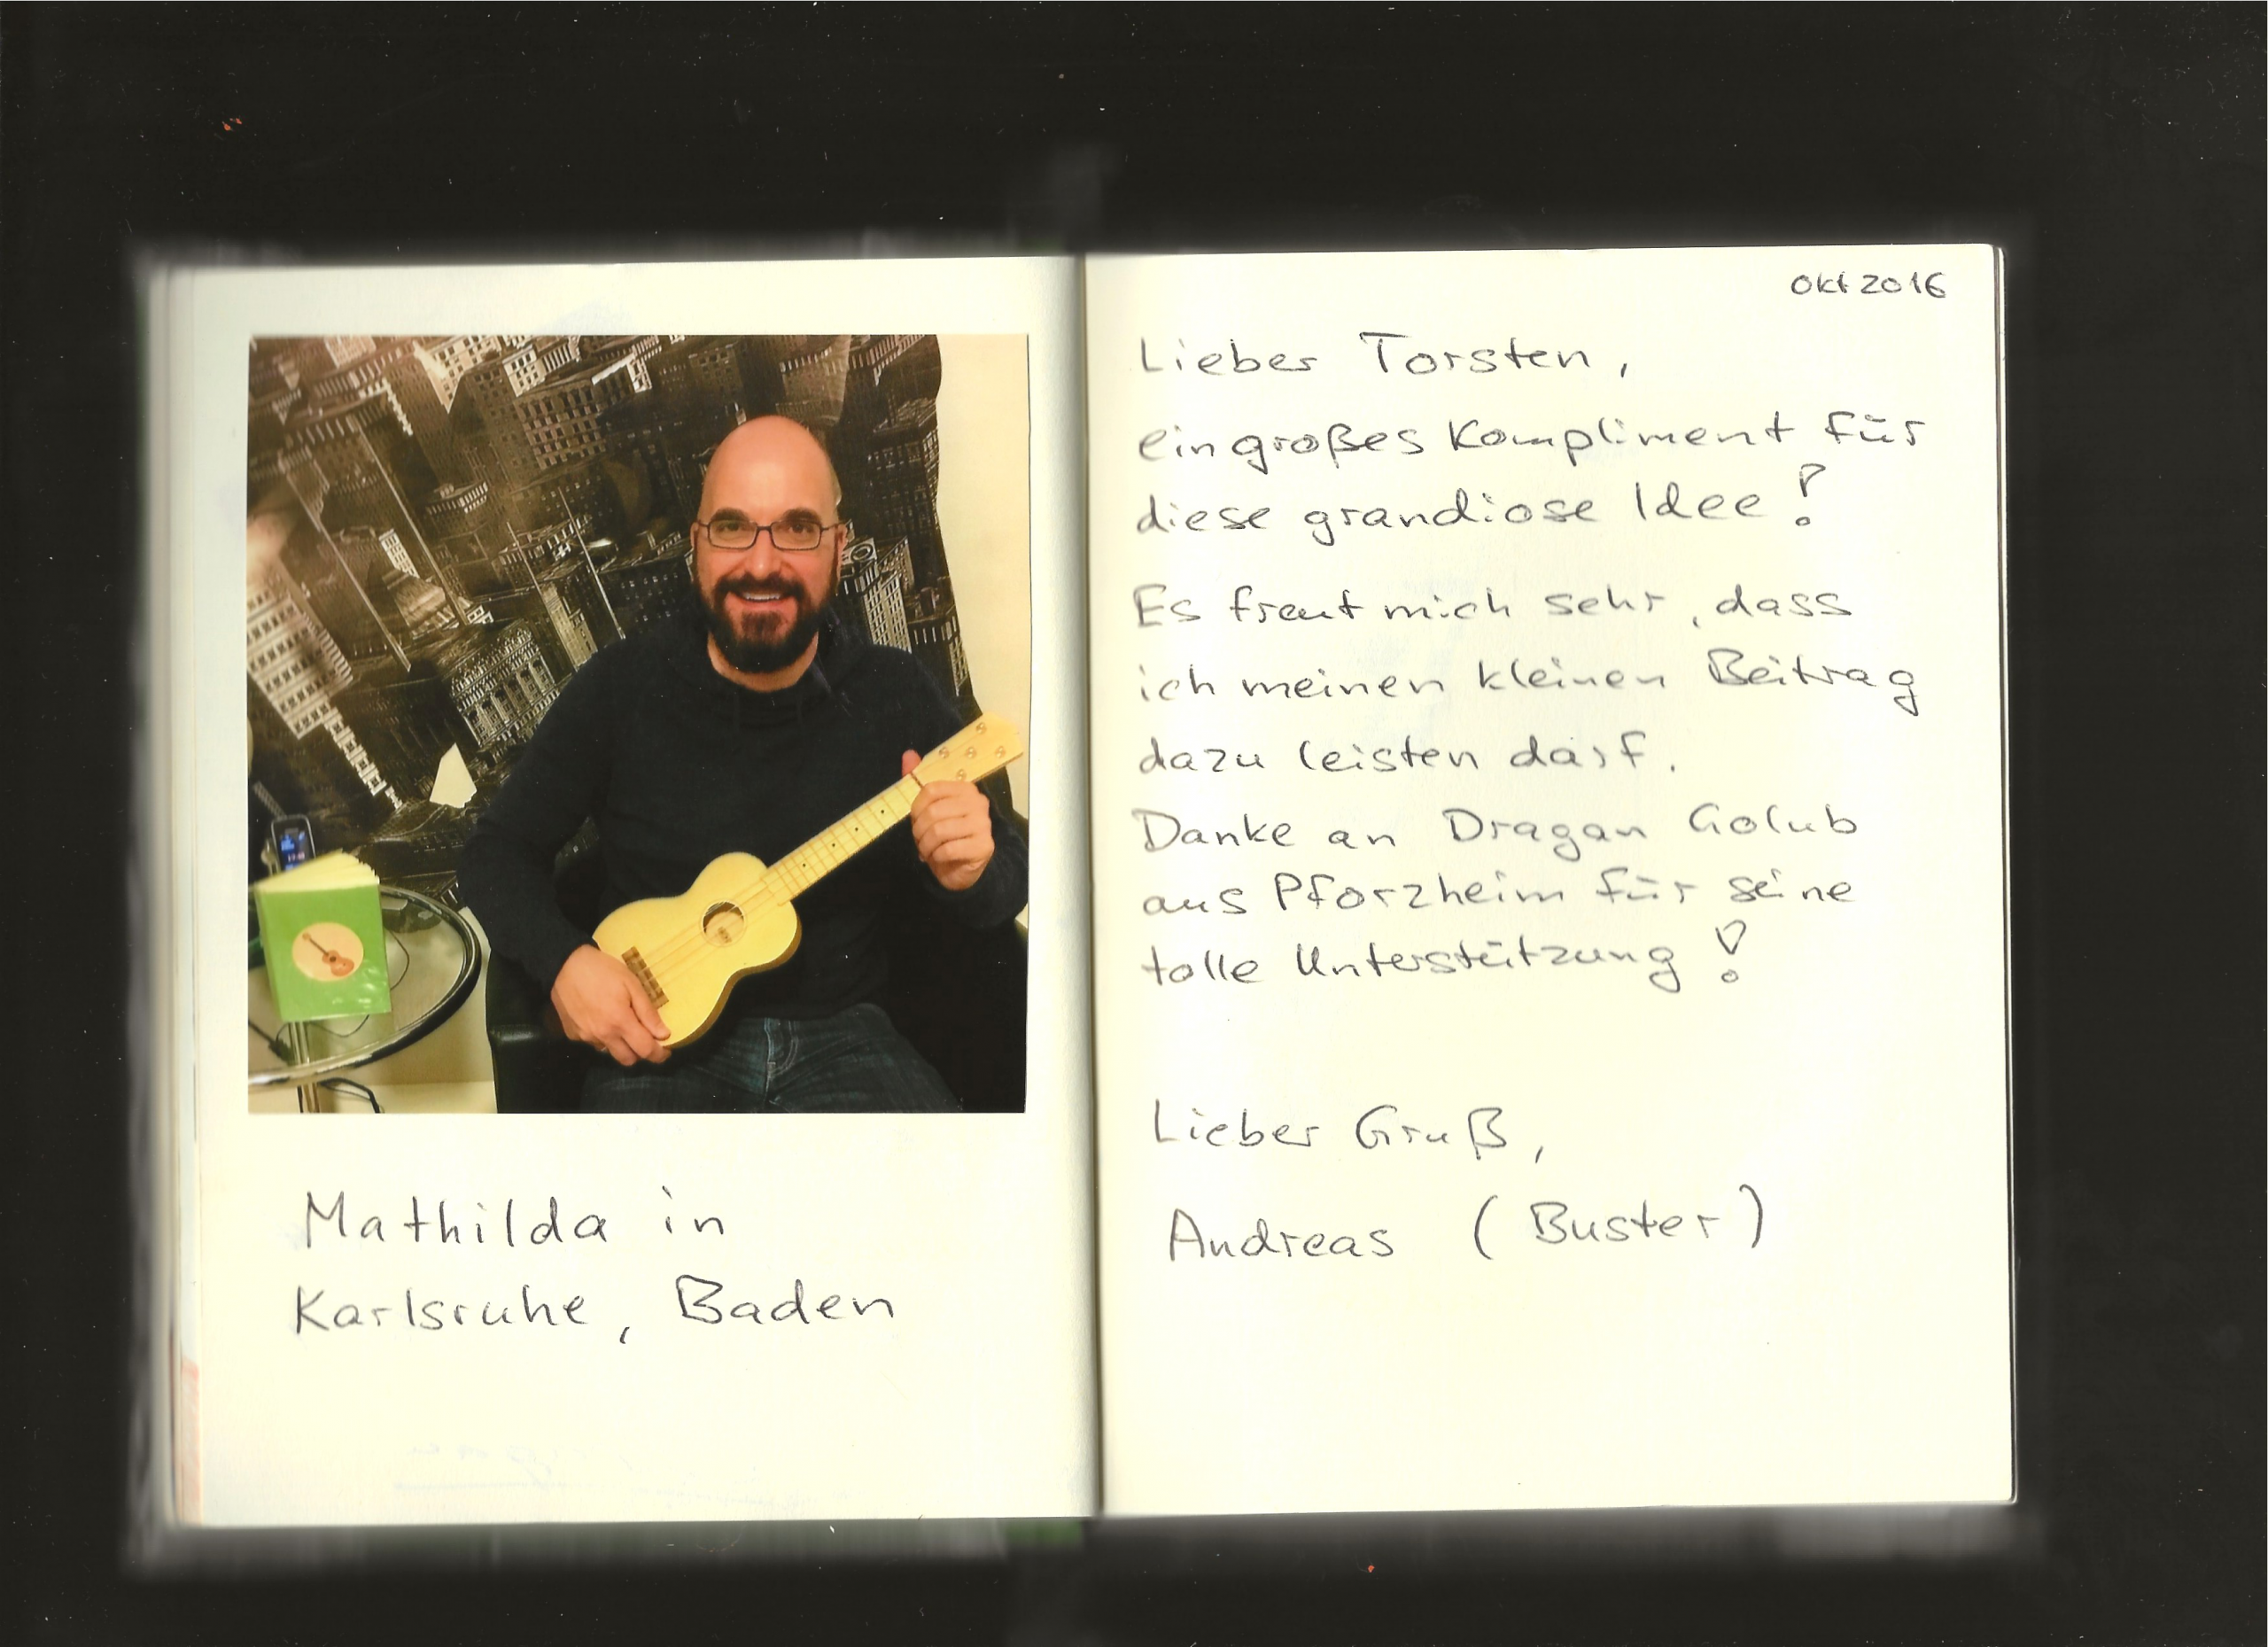 Mathilda in
Karlsruhe, Baden
Okt 2016
Lieber Torsten,
ein großes Kompliment für
diese grandiose Idee!
Es freut mich sehr, dass
ich meinen kleinen Beitrag
dazu leisten darf.
Danke an Dragan Golub
aus Pforzheim für seine
tolle Unterstützung!
Lieber Gruß,
Andreas (Buster)